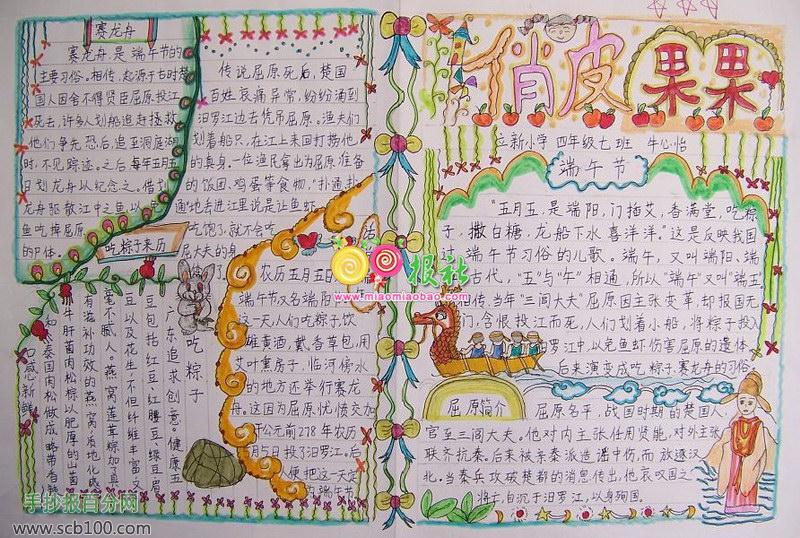 赛龙舟
赛龙舟,是端午节的
主要习俗。相传,起源于古时楚
国人因舍不得贤臣屈原投江
死去,许多人划船追赶拯救
他们争先恐后,追至洞庭湖
时,不见踪迹。之后每年五月五
日划龙舟以纪念之。借划
龙舟驱散江中之鱼,以
吃掉屈原
的尸体。
传说屈原死后,楚国
百姓哀痛异常,纷纷涌到
汨罗江边去凭吊屈原。渔夫们
划着船只,在江上来回打捞他
的真身。一位渔民拿出为屈原准备
的饭团、鸡蛋等食物,“扑通、扑
通”地丢进江里说是让鱼虾
吃饱了,就不会吃
屈大夫的身
吃粽子来历
农历五月五日
端午节又名端阳
这一天,人们吃粽子、饮
雄黄酒,戴香草包,用
艾叶熏房子,临河傍水
的地方还举行赛龙
舟。这因为屈原忧愤交加
于公元前278年农历
5月5日投了汨罗江。后
人便把这一天定
为端午节
吃粽子
广东追求创意。健康五
豆包括红豆、红腰豆、绿豆、眉
豆以及花生,不但纤维丰富,又
毫不腻人。燕窝莲茸粽加了具
有滋补功效的燕窝,质地化
牛肝菌肉松粽以肥厚的山菌
和泰国肉松做成,略带
口感新鲜
俏皮果果
立新小学 四年级七班 牛心怡
端午节
“五月五,是端阳,门插艾,香满堂,吃粽
子,撒白糖,龙船下水喜洋洋。”这是反映我国
过端午节习俗的儿歌。端午,又叫端阳、端
古代,“五”与“午”相通,所以“端午”又叫“端五
相传,当年“三闾大夫”屈原因主张变革,却报国无
门,含恨投江而死,人们划着小船,将粽子投入
罗江中,以免鱼虾伤害屈原的遗体,
后来演变成吃粽子、赛龙舟的习俗。
屈原简介
屈原名平,战国时期的楚国人,
官至三闾大夫。他对内主张任用贤能,对外主张
联齐抗秦。后来被亲秦派造谣中伤,而放逐汉
北。当秦兵攻破楚都的消息传出,他哀叹国之
将亡,自沉于汨罗江,以身殉国。
报社
www.miaomiaobao.com
手抄报百分网
www.scb100.com